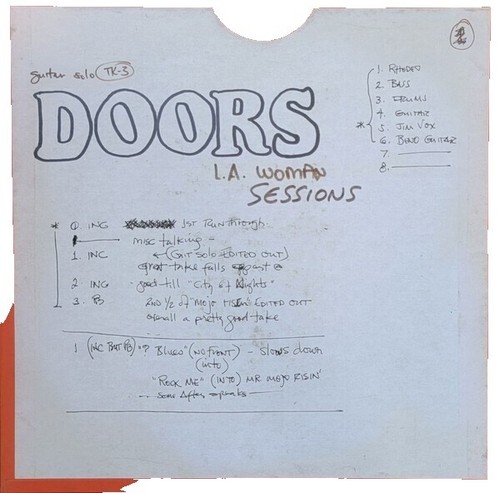 guitar solo TK-3
DOORS
L.A. WOMAN
SESSIONS
1. RHODES
2. BASS
3. DRUMS
4. GUITAR
* 5. JIM VOX
6. BEND GUITAR
7.
8.
* 0. INC 1ST Runthrough
misc talking -
1. INC ← (GIT SOLO EDITED OUT)
great take falls apart @
2 ING good till "City at Nights"
3. PB 2ND 1/2 of "MOJO RISIN" EDITED OUT
overall a pretty good take
1 (INC BUT PB) "? Blues" (NO FRONT) - Slows down
(into)
"ROCK ME" (INTO) MR MOJO RISIN'
-- some After